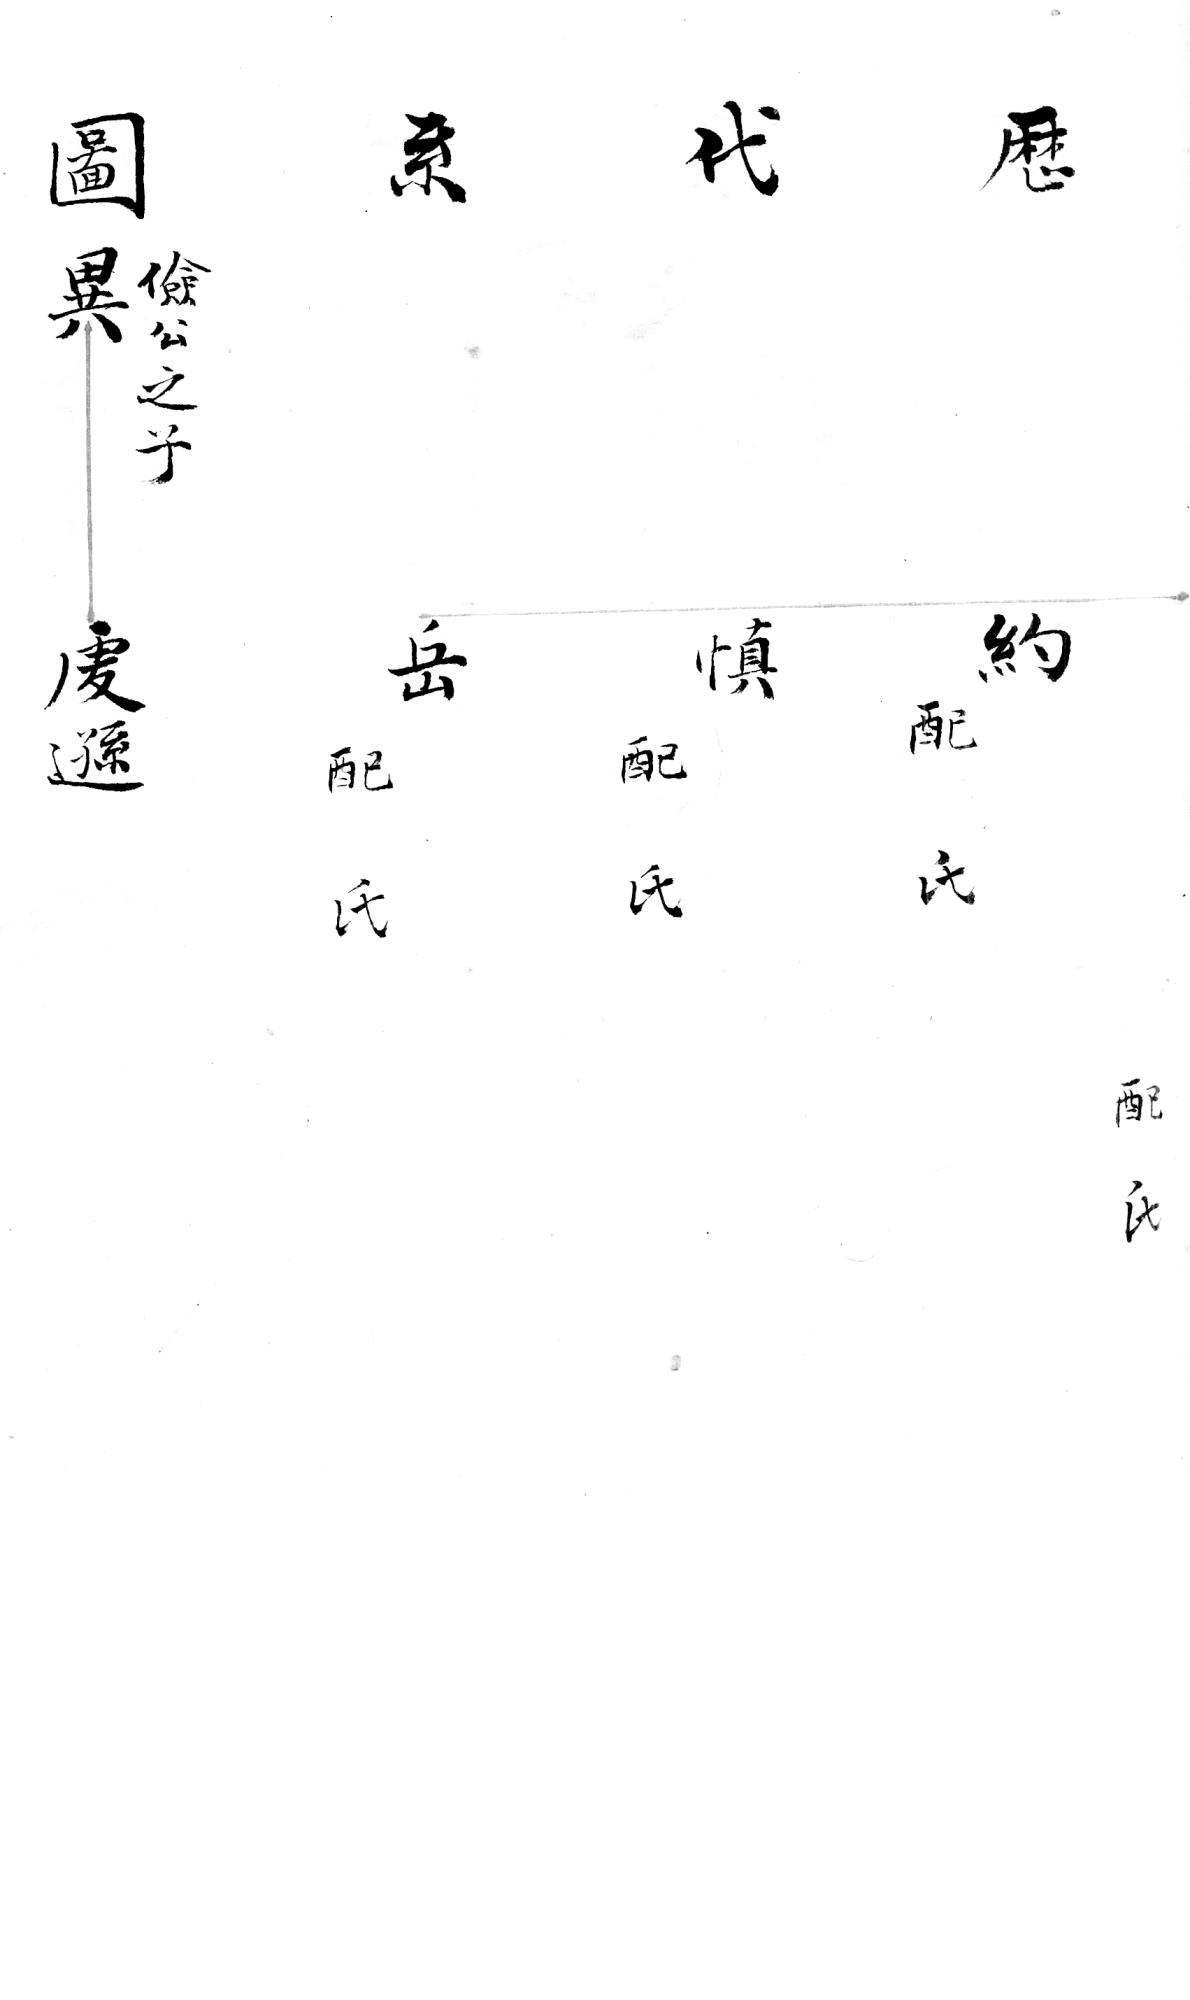 歴代系圖
配氏
約
配氏
慎
配氏
岳
配氏
儉公之子
異
虔遜